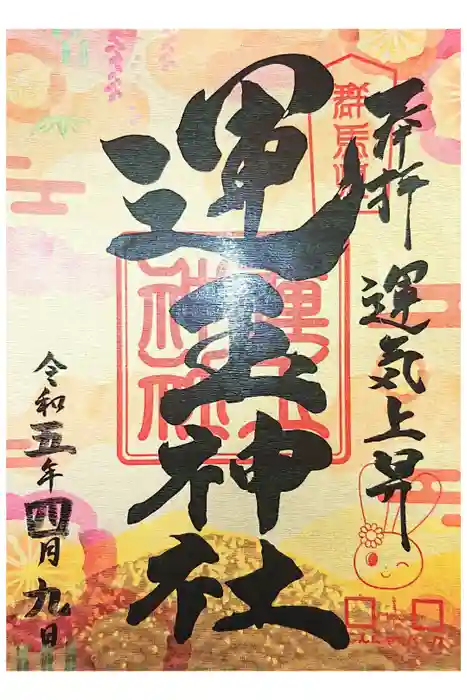 奉拝 運気上昇
群馬
運玉神社
令和五年四月九日